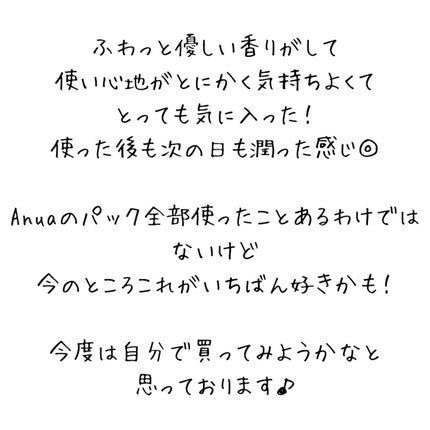 ふわっと優しい香りがして
使い心地がとにかく気持ちよくて
とっても気に入った！
使った後も次の日も潤った感じ◎
Anuaのパック全部使ったことあるわけでは
ないけど
今のところこれがいちばん好きかも！
今度は自分で買ってみようかなと
思っております♪